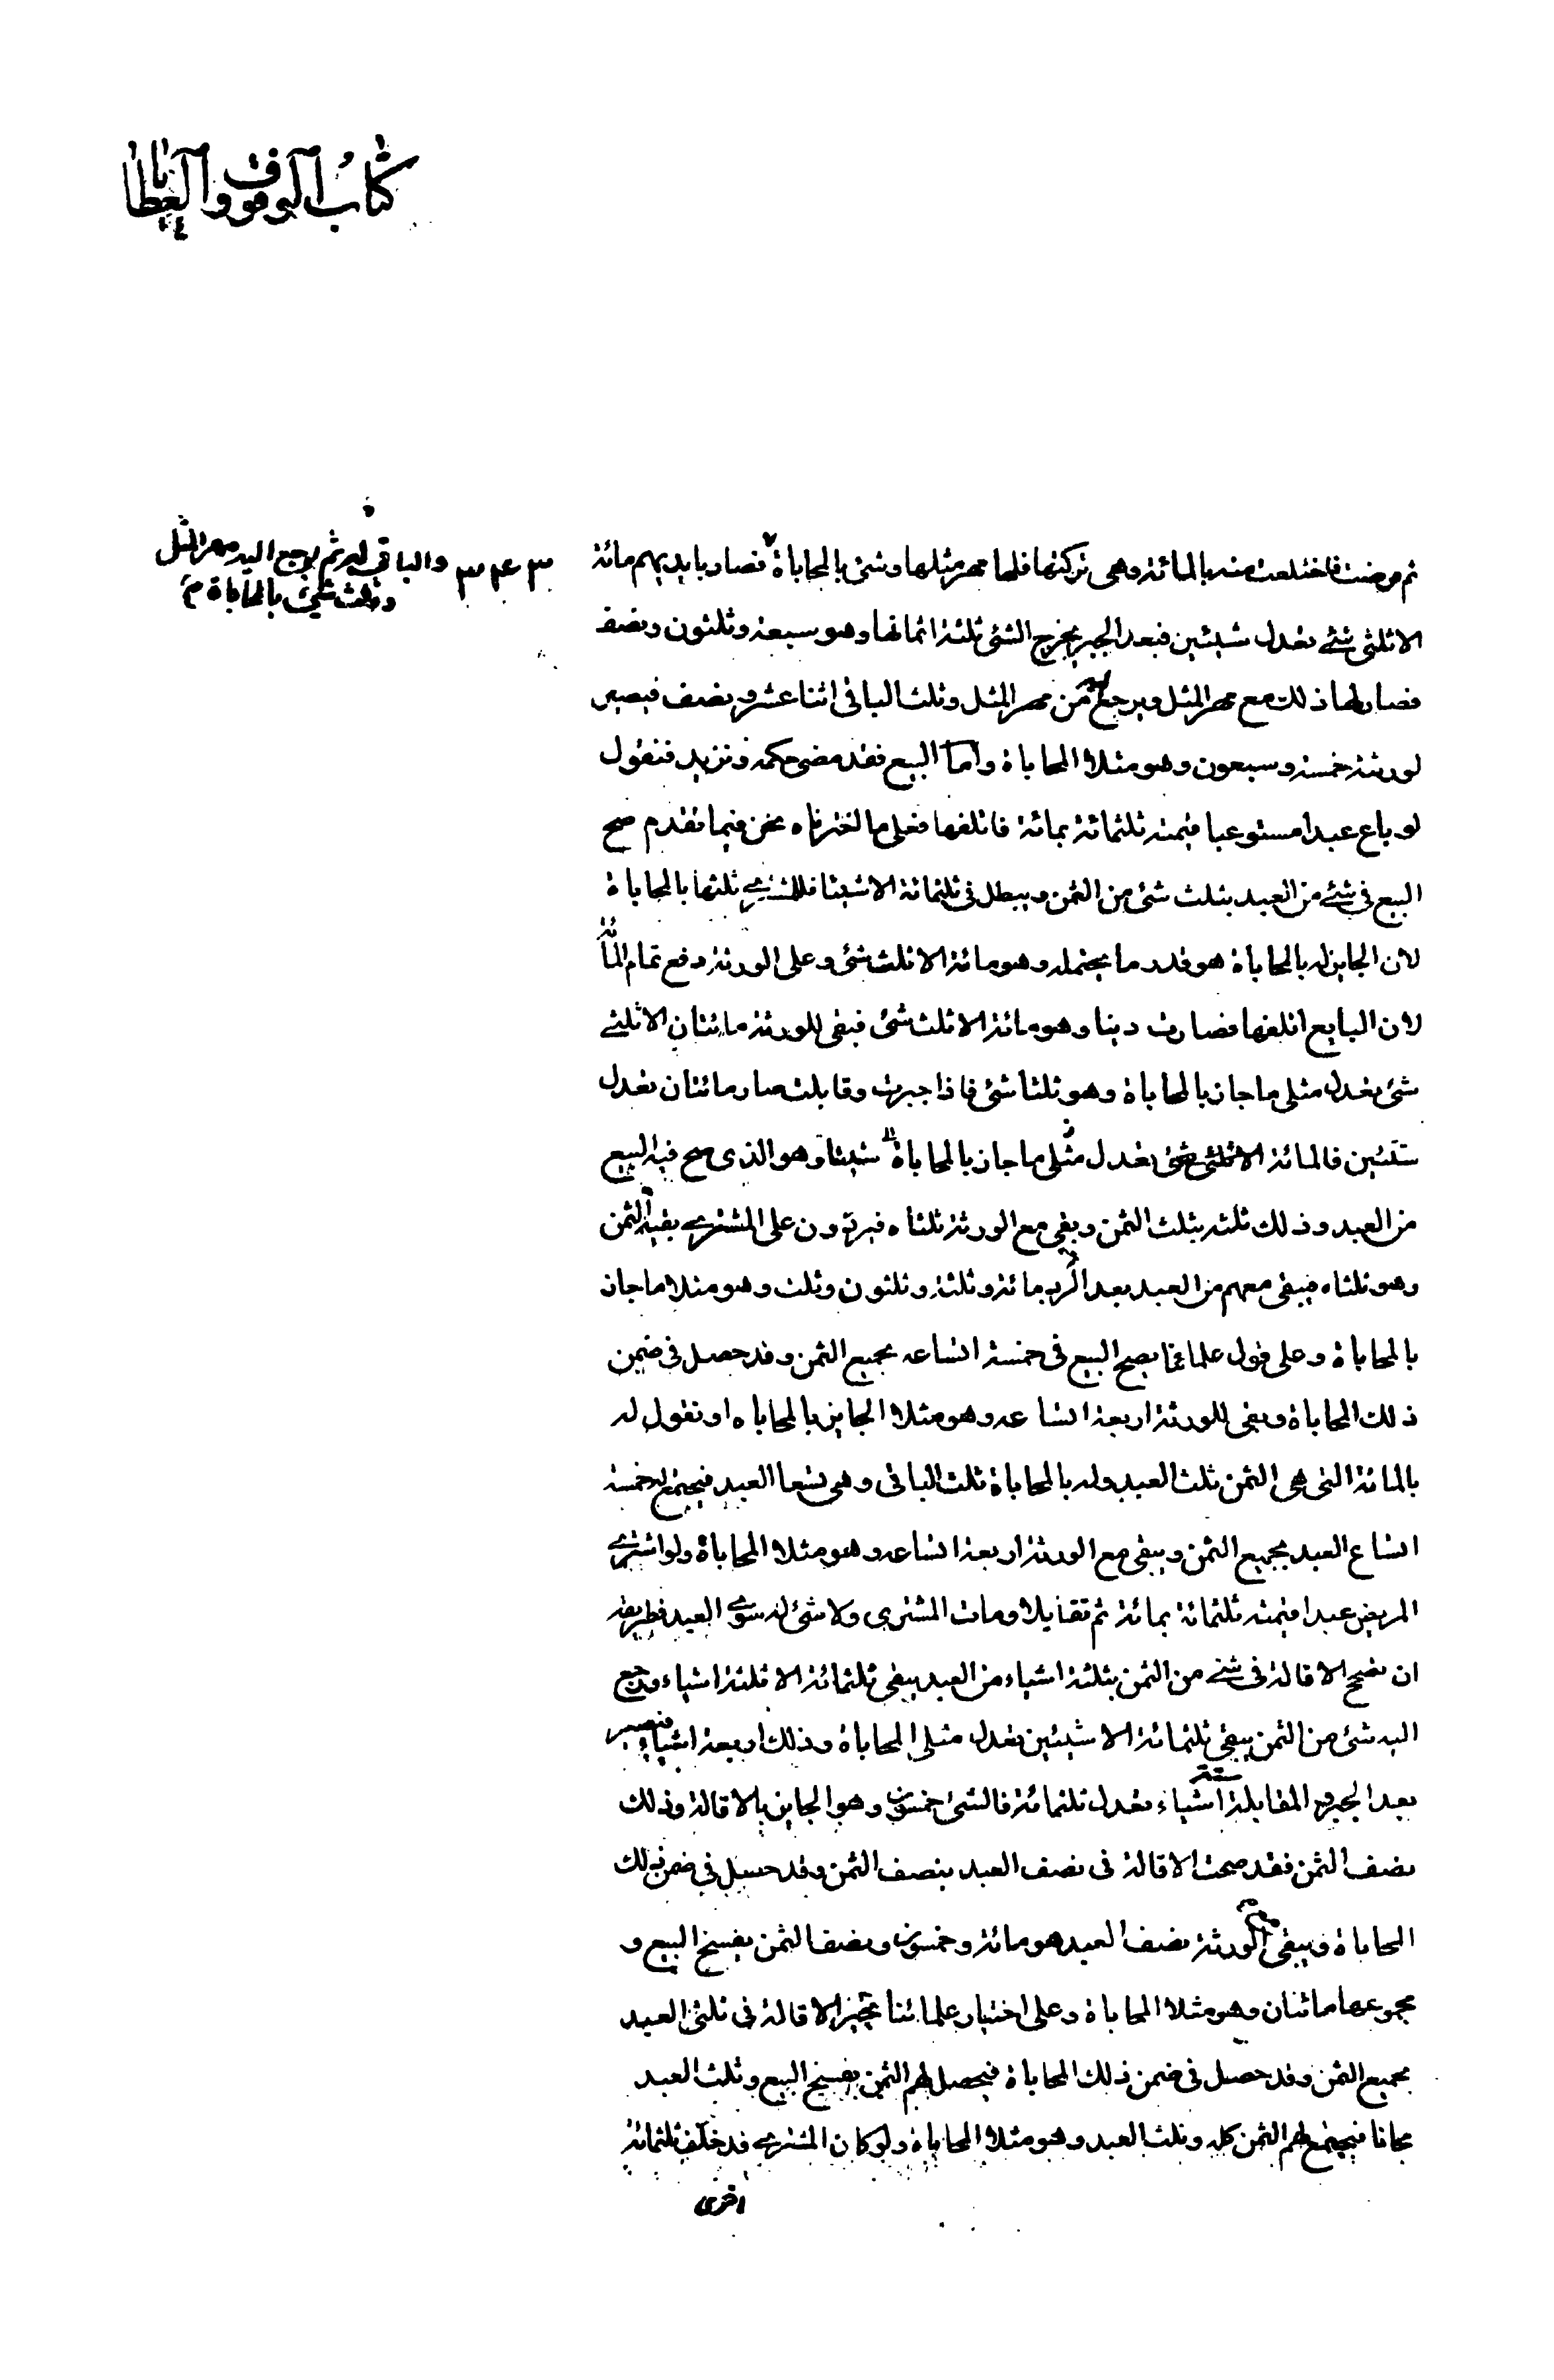 كتاب الوقوف والعطايا
ثم مرضت فاختلعت منه بالمائة وهى تركتها فلها مهر مثلها وشئ بالمحاباة فصار بايديهم مائة
٣ ٤ ٣ والباقى له ثم يرجع اليه مهر المثل
وثلث شئ بالمحاباة م
الا ثلثى شئ تعدل شيئين فبعد الجبر يخرج الشئ ثلثة اثمانها وهو سبعة وثلثون ونصف
فصار لها ذلك مع مهر المثل ويرجع اليه من مهر المثل وثلث الباقى اثنا عشر ونصف فيصير
لورثته خمسة وسبعون وهو مثلا المحاباة واما البيع فقد مضى حكمه ونزيد فنقول
لو باع عبدا مستوعبا قيمته ثلثمائة بمائة فاتلفها فعلى ما اخترناه نحن فيما تقدم صح
البيع فى شئ من العبد بثلث شئ من الثمن ويبطل فى ثلثمائة الا شيئا فللمشترى ثلثها بالمحاباة
لان الجايز له بالمحاباة هو قدر ما يحتمله وهو مائة الا ثلث شئ وعلى الورثة دفع تمام المائة
لان البايع اتلفها فصارت دينا وهو مائة الا ثلث شئ فبقى للورثة مائتان الا ثلثى
شئ يعدل مثلى ما جاز بالمحاباة وهو ثلثا شئ فاذا جبرت وقابلت صار مائتان تعدل
شيئين فالمائة الا ثلثى شئ يعدل مثلى ما جاز بالمحاباة شيئا وهو الذى صح فيه البيع
من العبد وذلك ثلثه بثلث الثمن وبقى مع الورثة ثلثاه فيردون على المشترى بقية الثمن
وهو ثلثاه فيبقى معهم من العبد بعد الرد مائة وثلثة وثلثون وثلث وهو مثلا ما جاز
بالمحاباة وعلى قول علمائنا يصح البيع فى خمسة اتساعه بجميع الثمن وقد حصل فى ضمن
ذلك المحاباة وبقى للورثة اربعة اتساعه وهو مثلا الجايز بالمحاباه او نقول له
بالمائة التى هى الثمن ثلث العبد وله بالمحاباة ثلث الباقى وهى تسعا العبد فيجتمع له خمسة
اتساع العبد بجميع الثمن ويبقى مع الورثة اربعة اتساعه وهو مثلا المحاباة ولو اشترى
المريض عبدا قيمته ثلثمائة بمائة ثم تقايلا ومات المشترى ولا شئ له سوى العبد فطريقه
ان تصح الاقالة فى شئ من الثمن بثلثة اشياء من العبد يبقى ثلثمائة الا ثلثة اشياء ورجع
اليه شئ من الثمن يبقى ثلثمائة الا شيئين تعدل مثلى المحاباة وذلك اربعة اشياء فتصير
بعد الجبر والمقابلة ستة اشياء تعدل ثلثمائة فالشئ خمسون وهو الجايز بالاقالة وذلك
نصف الثمن فقد صحت الاقالة فى نصف العبد بنصف الثمن وقد حصل فى ضمن ذلك
المحاباة ويبقى مع الورثة نصف العبد هو مائة وخمسون ونصف الثمن بفسخ البيع و
مجموعها مائتان وهو مثلا المحاباة وعلى اختيار علمائنا تجيز الاقالة فى ثلثى العبد
بجميع الثمن وقد حصل فى ضمن ذلك المحاباة فيحصل لهم الثمن بفسخ البيع وثلث العبد
مجانا فيجتمع لهم الثمن كله وثلث العبد وهو مثلا المحاباة ولو كان المشترى قد خلف ثلثمائة
اخرى